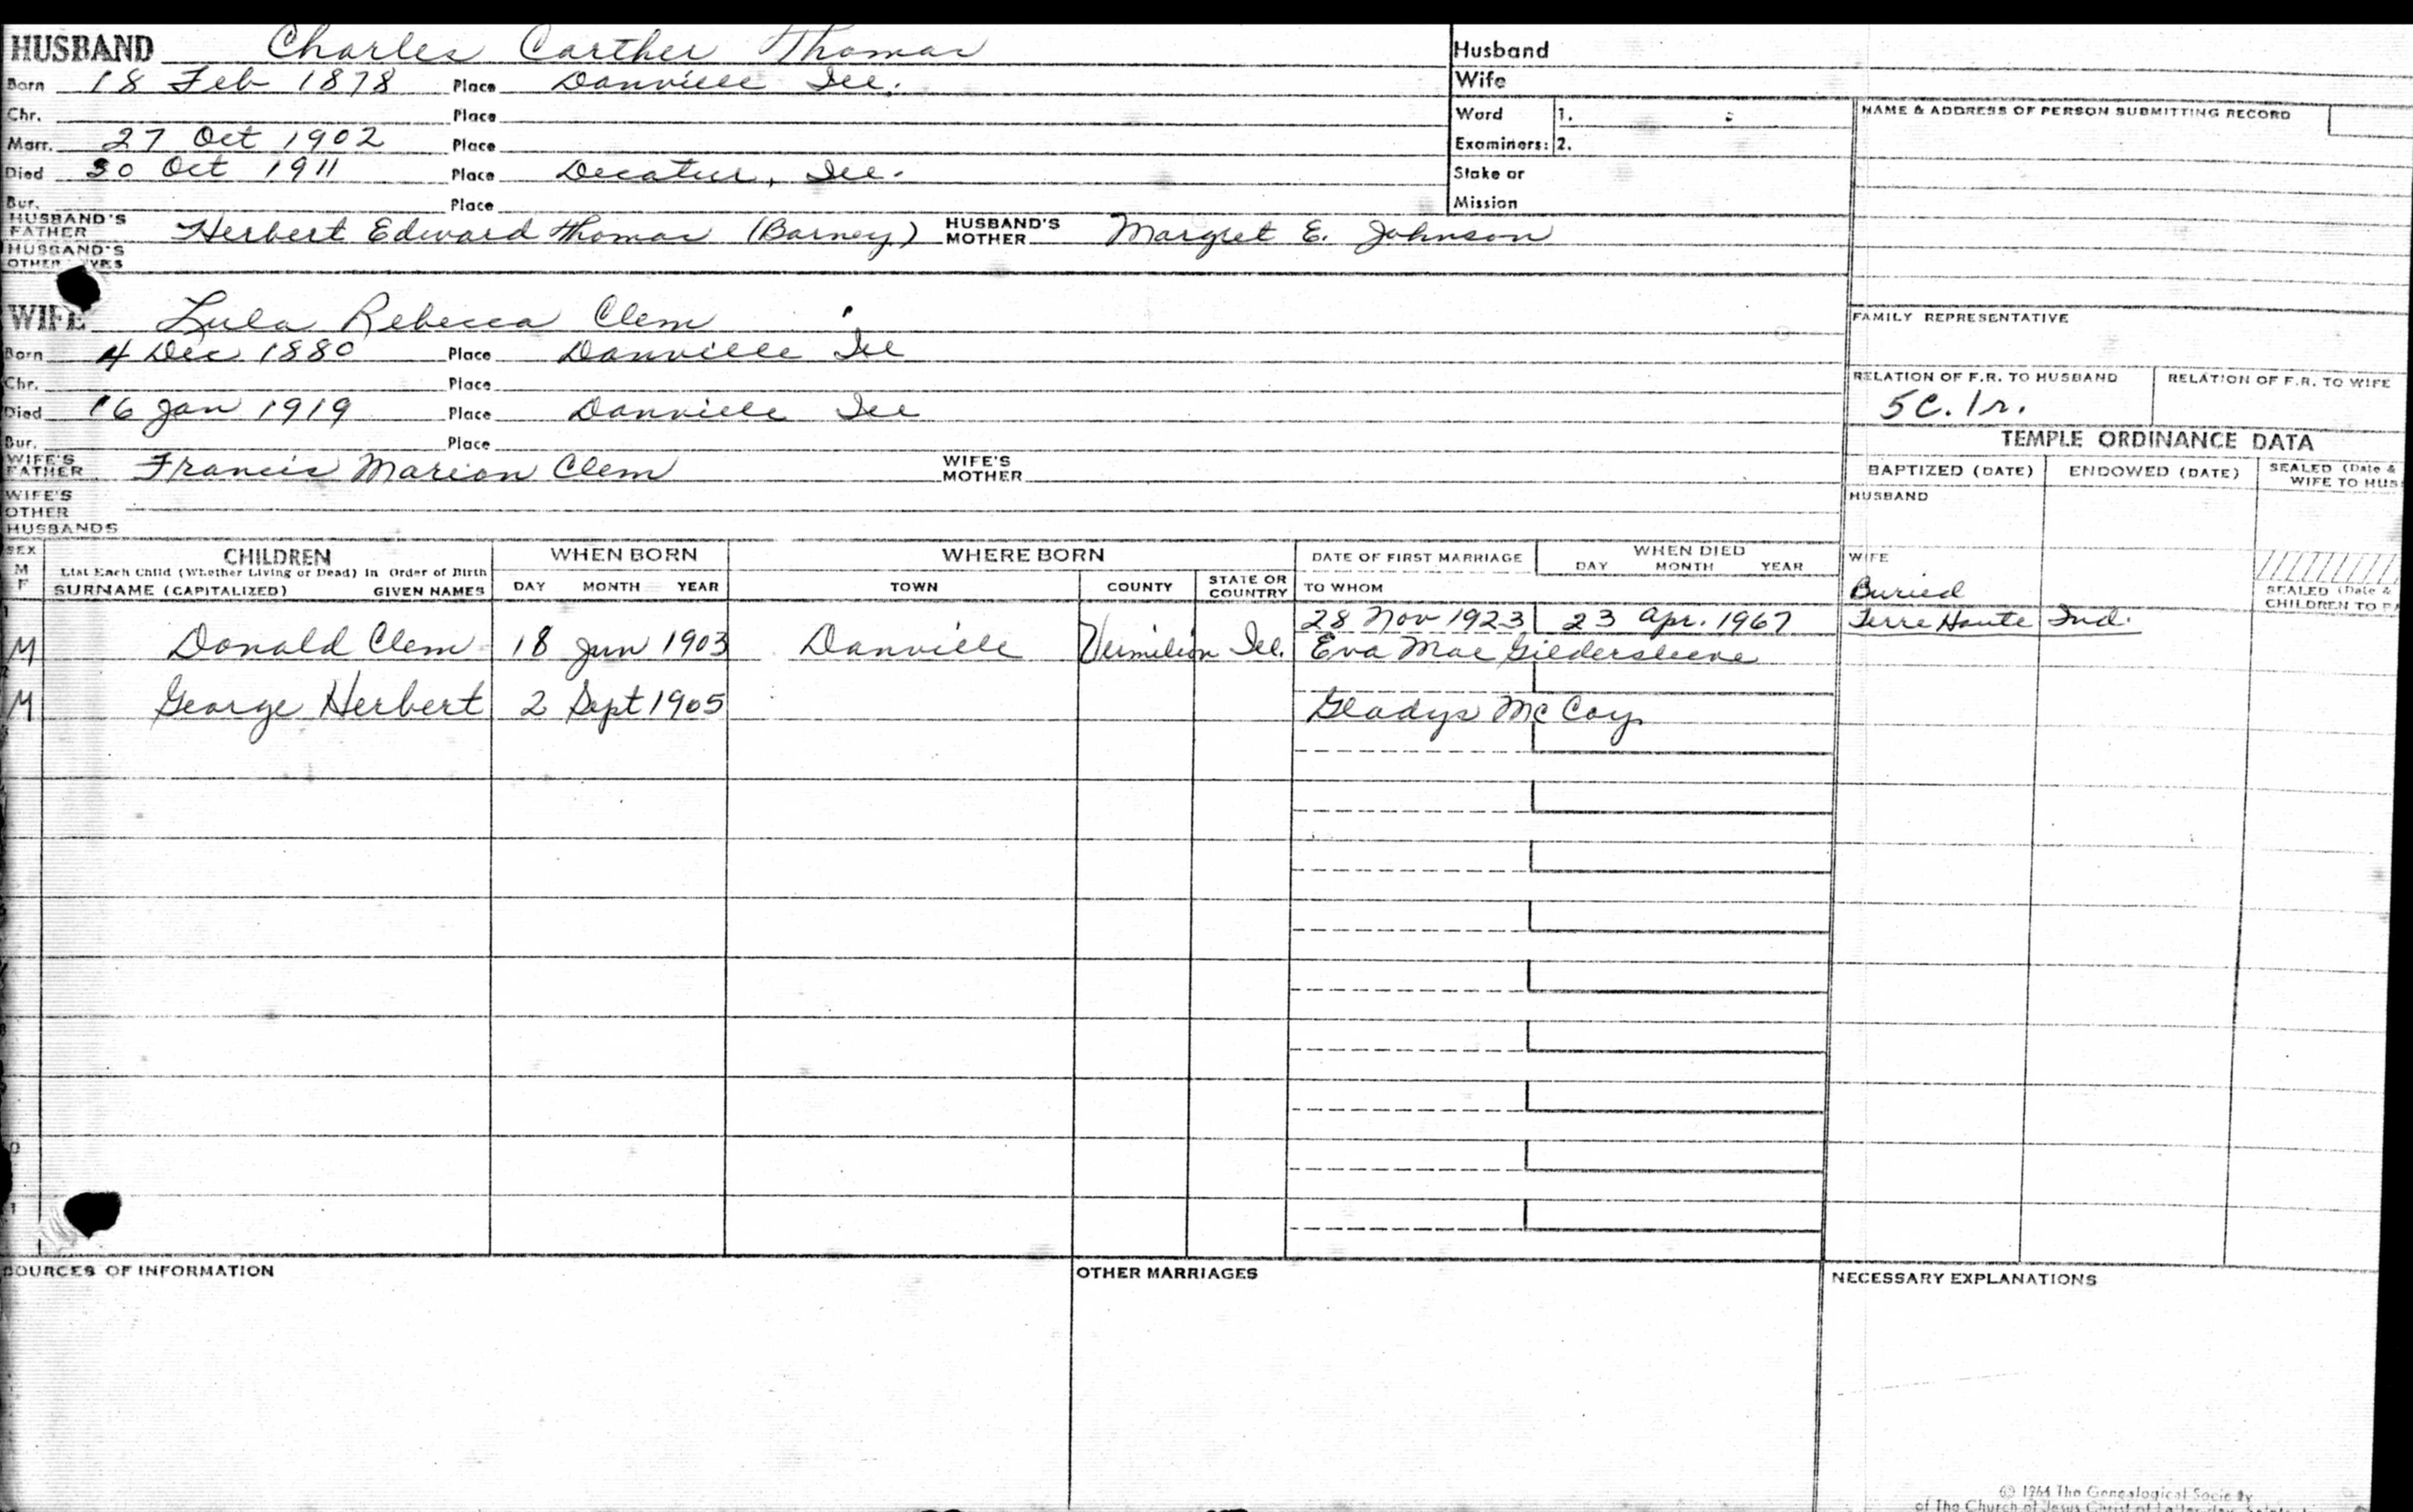 HUSBAND Charles Carther Thomas
Born 18 Feb 1878 Place Danville Ill.
Chr. Place
Marr. 27 Oct 1902 Place
Died 30 Oct 1911 Place Decatur, Ill.
Bur. Place
HUSBAND'S FATHER Herbert Edward Thomas (Barney) HUSBAND'S MOTHER Margret E. Johnson
HUSBAND'S OTHER WIVES
Husband
Wife
Ward 1.
Examiners: 2.
Stake or
Mission
NAME & ADDRESS OF PERSON SUBMITTING RECORD
WIFE Lula Rebecca Clem
Born 4 Dec 1880 Place Danville Ill
Chr. Place
Died 16 Jan 1919 Place Danville Ill
Bur. Place
WIFE'S FATHER Francis Marion Clem WIFE'S MOTHER
WIFE'S OTHER HUSBANDS
FAMILY REPRESENTATIVE
RELATION OF F.R. TO HUSBAND RELATION OF F.R. TO WIFE
5C. 1r.
TEMPLE ORDINANCE DATA
BAPTIZED (DATE) ENDOWED (DATE) SEALED (Date &
WIFE TO HUS
HUSBAND
WIFE
Buried
SEALED (Date &
CHILDREN TO
SEX M F
CHILDREN
List Each Child (Whether Living or Dead) in Order of Birth
SURNAME (CAPITALIZED) GIVEN NAMES
WHEN BORN
DAY MONTH YEAR
WHERE BORN
TOWN COUNTY STATE OR COUNTRY
DATE OF FIRST MARRIAGE
TO WHOM
WHEN DIED
DAY MONTH YEAR
1 28 Nov 1923 23 Apr. 1967 Terre Haute Ind.
M Donald Clem 18 Jun 1903 Danville Vermilion Ill. Eva Mae Gildersleeve
M George Herbert 2 Sept 1905 Gladys McCoy
SOURCES OF INFORMATION
OTHER MARRIAGES
NECESSARY EXPLANATIONS
© 1964 The Genealogical Society
of The Church of Jesus Christ of Latter-day Saints